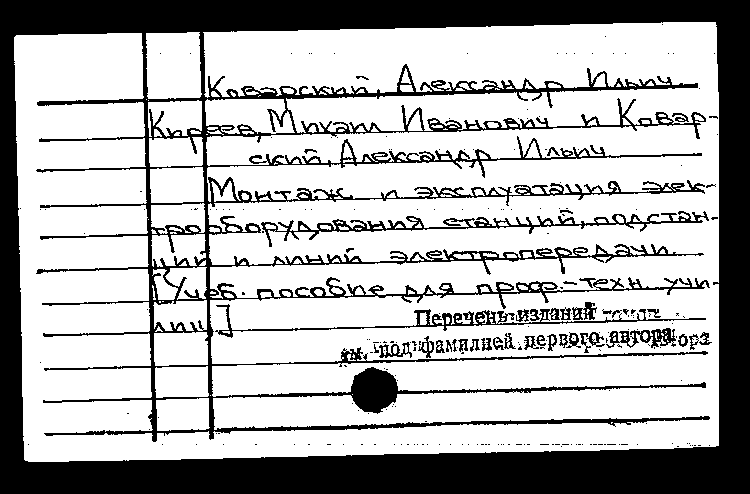 Коварский, Александр Ильич.
Киреев, Михаил Иванович и Ковар-
ский, Александр Ильич
Монтаж и эксплуатация элек-
трооборудования станций, подстан-
ций и линий электропередачи.
[Учеб. пособие для проф.-техн. учи-
лищ]
Перечень изданий
см. под фамилией первого автора